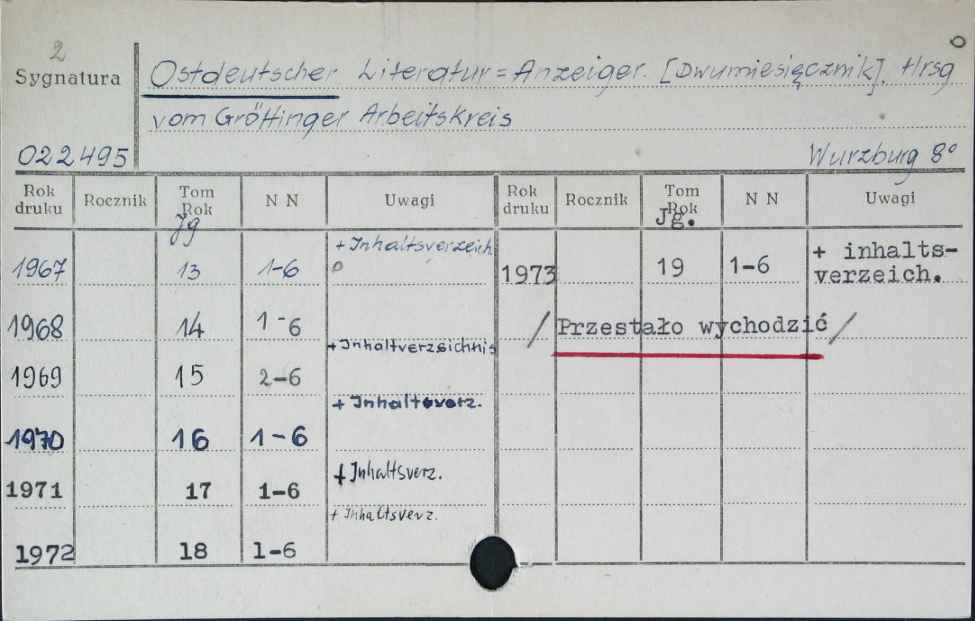 2
Sygnatura
Ostdeutscher Literatur=Anzeiger. [Dwumiesięcznik]. Hrsg
vom Gröttinger Arbeitskreis
022495
Wurzburg 8°
Rok druku Rocznik Tom Rok N N Uwagi Rok druku Rocznik Tom Rok N N Uwagi
Jg Jg.
+ Inhaltsverzeich.
1967 13 1-6
1973 19 1-6 + inhalts-
verzeich.
1968 14 1-6
/ Przestało wychodzić /
+Inhaltverzeichnis
1969 15 2-6
+ Inhaltsverz.
1970 16 1-6
+ Inhaltsverz.
1971 17 1-6
+ Inhaltsverz.
1972 18 1-6